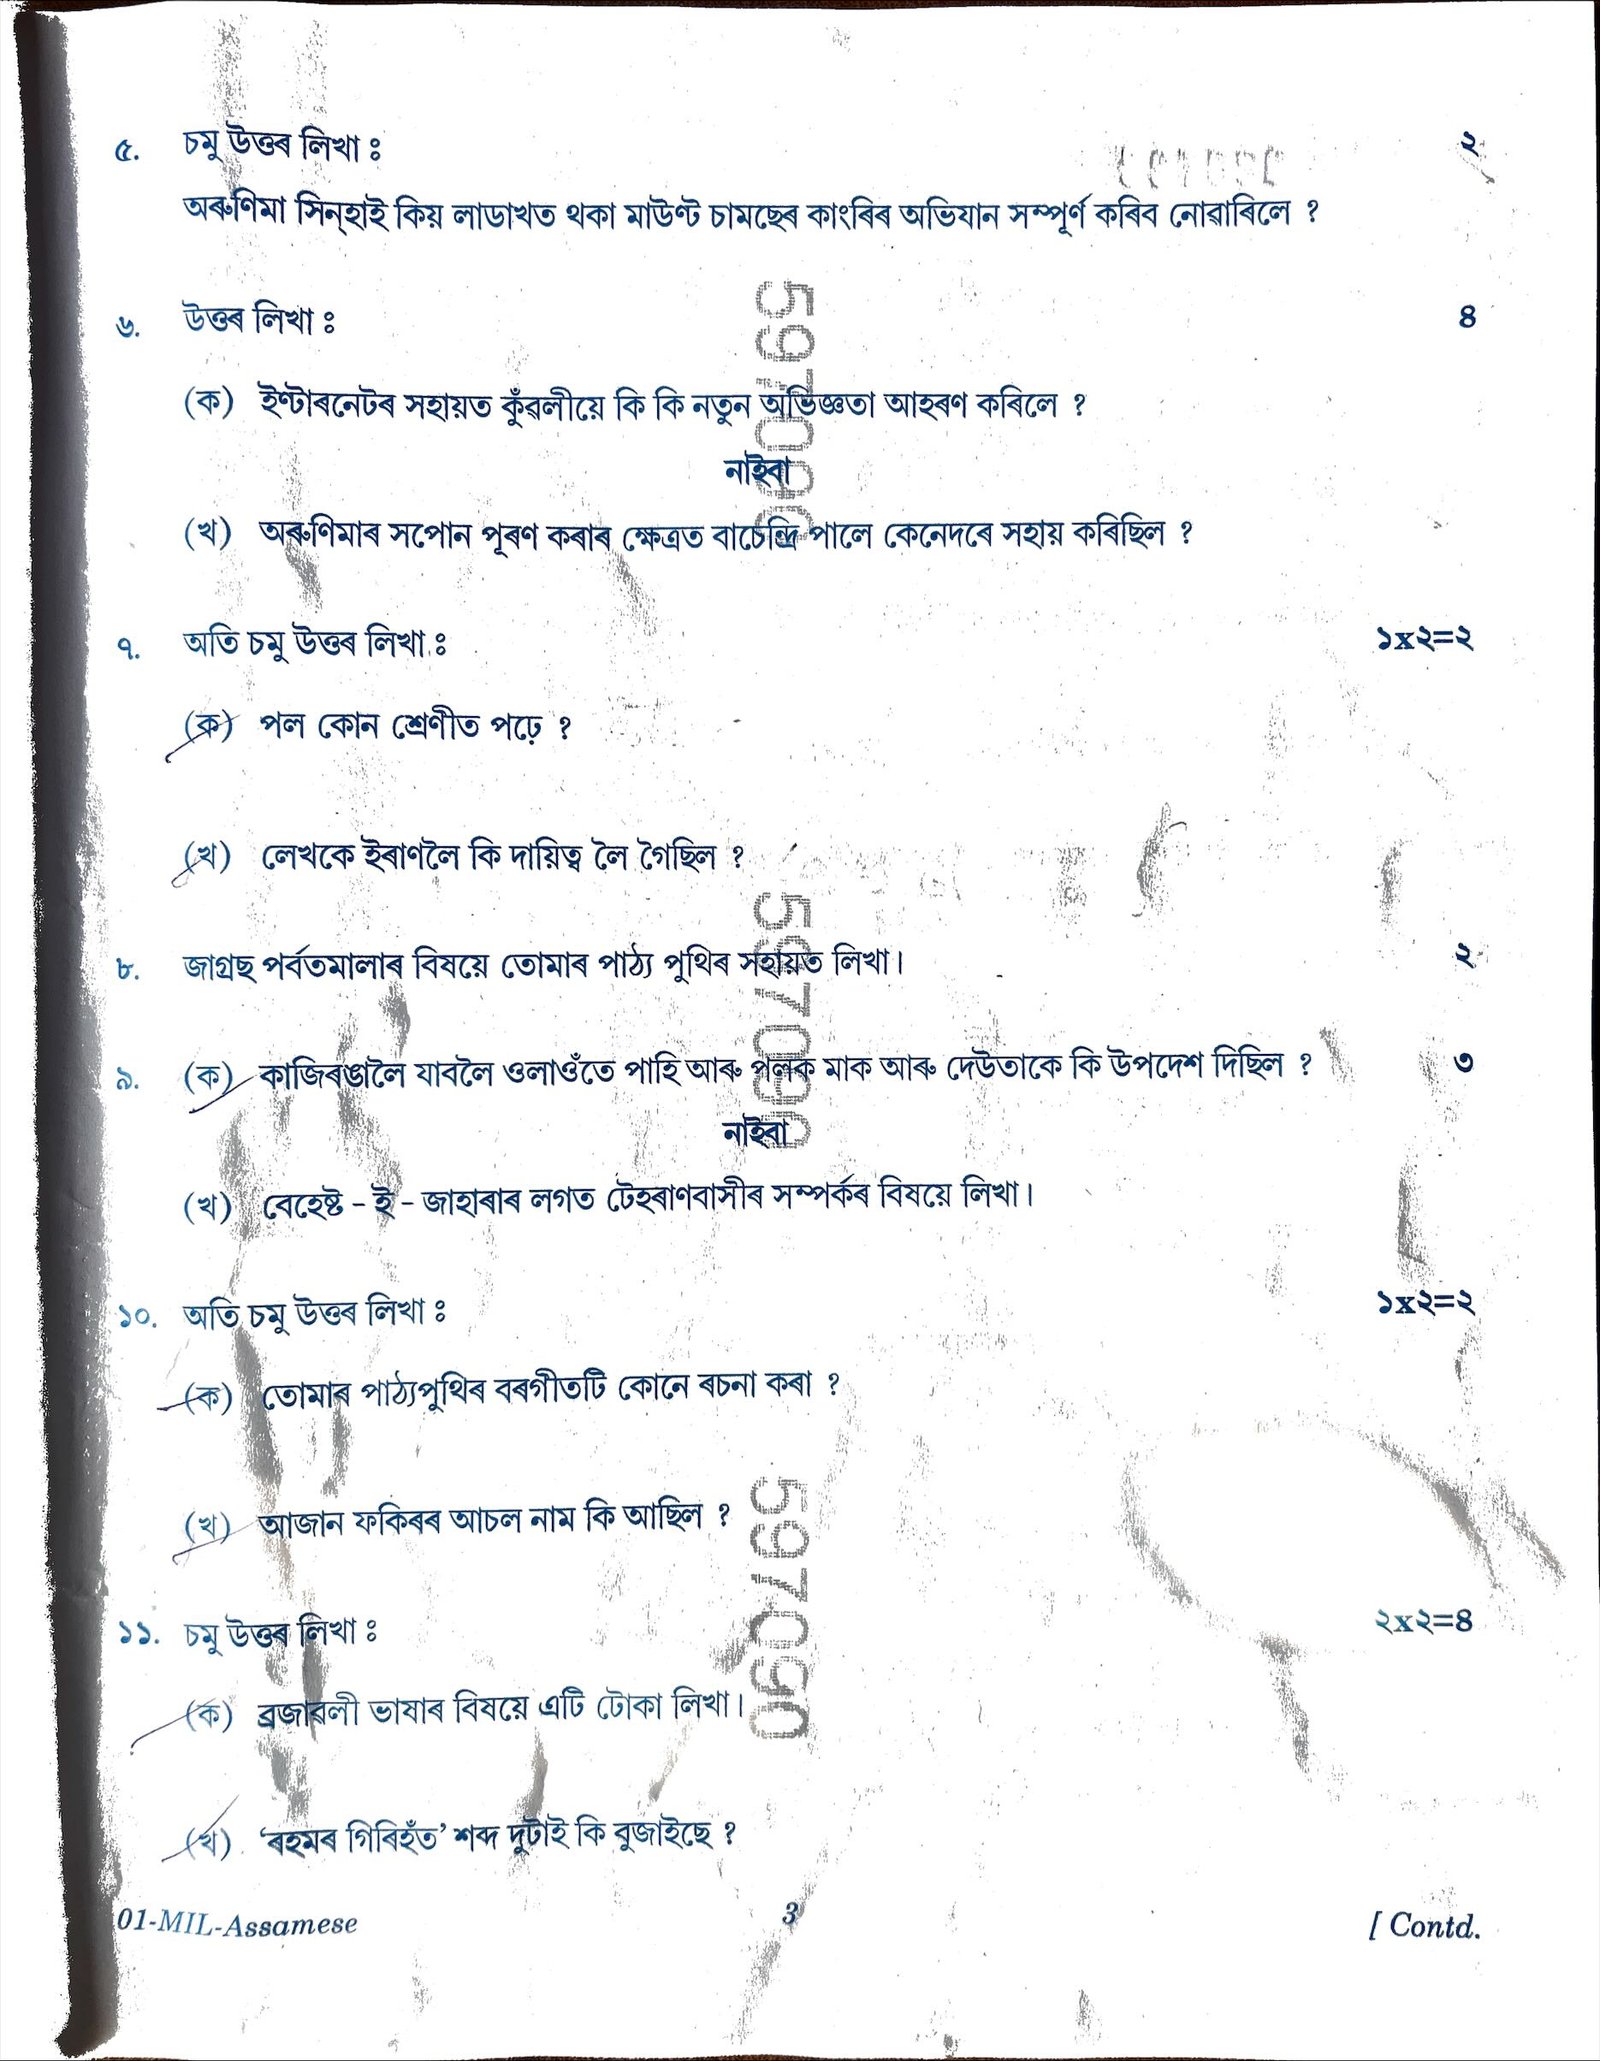 ৫. চমু উত্তৰ লিখা ঃ ২
অৰুণিমা সিন্‌হাই কিয় লাডাখত থকা মাউণ্ট চামছেৰ কাংৰিৰ অভিযান সম্পূৰ্ণ কৰিব নোৱাৰিলে ?
৬. উত্তৰ লিখা ঃ ৪
(ক) ইণ্টাৰনেটৰ সহায়ত কুঁৱলীয়ে কি কি নতুন অভিজ্ঞতা আহৰণ কৰিলে ?
নাইবা
(খ) অৰুণিমাৰ সপোন পূৰণ কৰাৰ ক্ষেত্ৰত বাচেন্দ্ৰি পালে কেনেদৰে সহায় কৰিছিল ?
৭. অতি চমু উত্তৰ লিখা ঃ ১x২=২
(ক) পল কোন শ্ৰেণীত পঢ়ে ?
(খ) লেখকে ইৰাণলৈ কি দায়িত্ব লৈ গৈছিল ?
৮. জাগ্ৰছ পৰ্বতমালাৰ বিষয়ে তোমাৰ পাঠ্য পুথিৰ সহায়ত লিখা। ২
৯. (ক) কাজিৰঙালৈ যাবলৈ ওলাওঁতে পাহি আৰু পলক মাক আৰু দেউতাকে কি উপদেশ দিছিল ? ৩
নাইবা
(খ) বেহেষ্ট - ই - জাহাৰাৰ লগত টেহৰাণবাসীৰ সম্পৰ্কৰ বিষয়ে লিখা।
১০. অতি চমু উত্তৰ লিখা ঃ ১x২=২
(ক) তোমাৰ পাঠ্যপুথিৰ বৰগীতটি কোনে ৰচনা কৰা ?
(খ) আজান ফকিৰৰ আচল নাম কি আছিল ?
১১. চমু উত্তৰ লিখা ঃ ২x২=৪
(ক) ব্ৰজাৱলী ভাষাৰ বিষয়ে এটি টোকা লিখা।
(খ) ‘ৰহমৰ গিৰিহঁত’ শব্দ দুটাই কি বুজাইছে ?
01-MIL-Assamese 3 [ Contd.